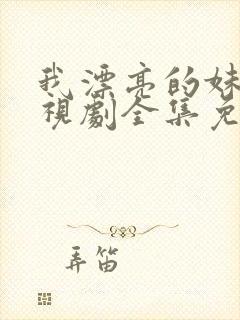 我漂亮的妹
視劇全集免
弄笛